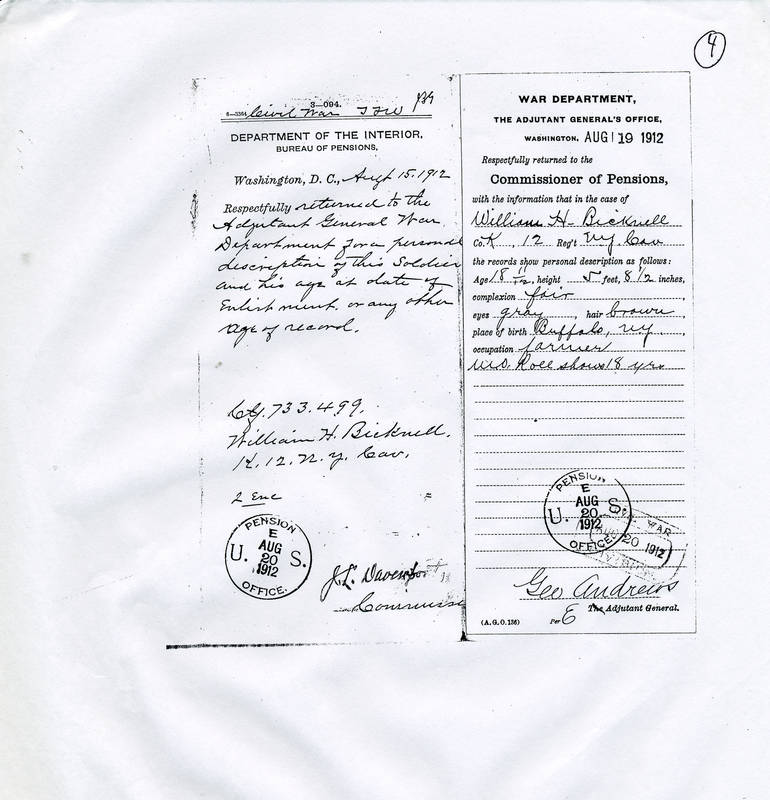 4
3—094.
Civil War
DEPARTMENT OF THE INTERIOR,
BUREAU OF PENSIONS,
Washington, D. C., Augt 15, 1912
Respectfully returned to the
Adjutant General War
Department for a personal
description of this Soldier
and his age at date of
Enlistment, or any other
age of record.
Ctf. 733.499.
William H. Bicknell.
K. 12. N.Y. Cav.
2 Enc
PENSION
E
AUG
U. 20 S.
1912
OFFICE.
J.L. Davenport
Commiss
WAR DEPARTMENT,
THE ADJUTANT GENERAL'S OFFICE,
WASHINGTON, AUG 19 1912
Respectfully returned to the
Commissioner of Pensions,
with the information that in the case of
William H. Bicknell
Co. K, 12 Reg't N.Y. Cav
the records show personal description as follows:
Age 18 11/12, height 5 feet, 8 1/2 inches,
complexion fair,
eyes gray, hair brown,
place of birth Buffalo, N.Y.,
occupation farmer
M.O. Roll shows 18 yrs
PENSION
E
AUG
U. 20 S.
1912
OFFICE
WAR
20 1912
Geo Andrews
The Adjutant General.
(A. G. O. 136) Per E